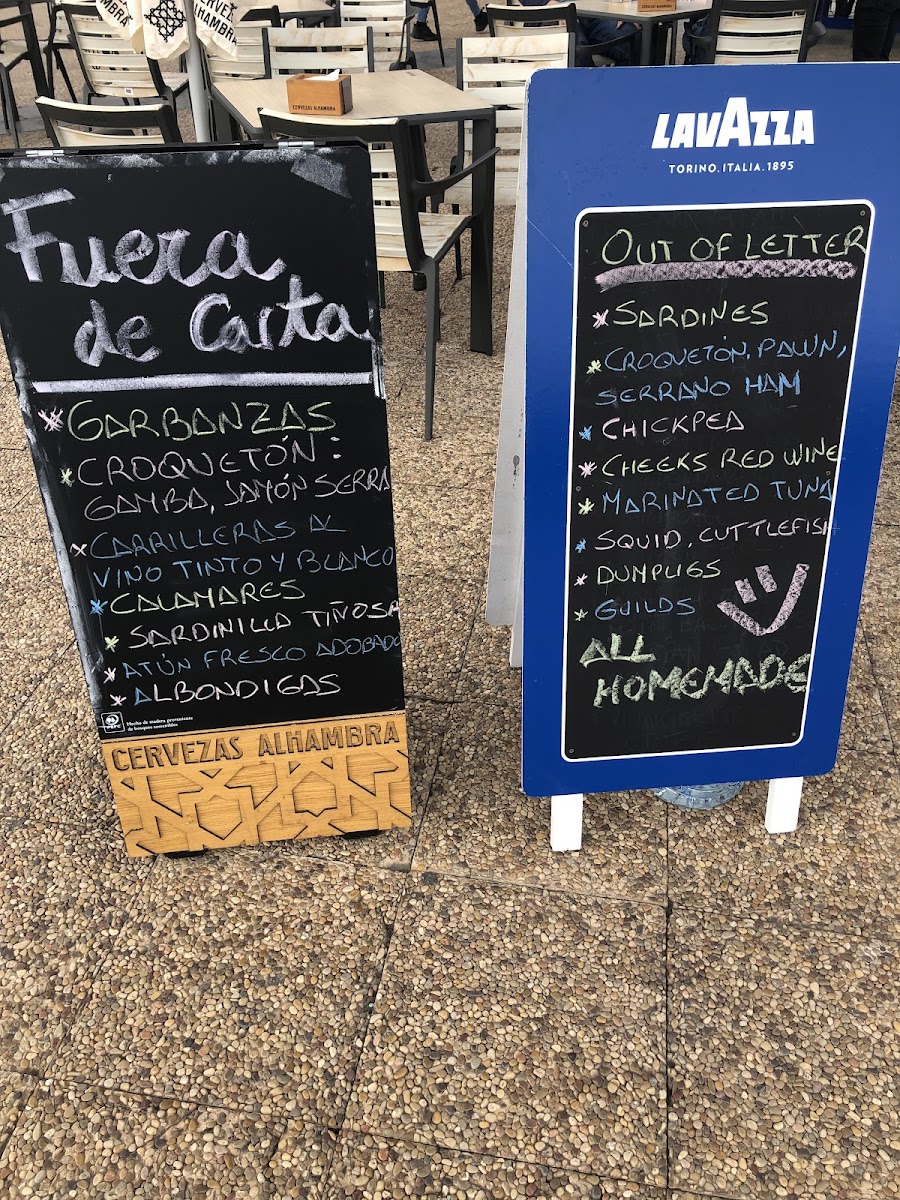 ALHAMBRA
CERVEZAS
ALHAMBRA
CERVEZAS ALHAMBRA
Fuera
de Carta
* GARBANZAS
* CROQUETÓN:
GAMBA, JAMÓN SERRA
* CARRILLERAS AL
VINO TINTO Y BLANCO
* CALAMARES
* SARDINILLA TIÑOSA
* ATÚN FRESCO ADOBADO
* ALBONDIGAS
Hecho de madera proveniente
de bosques sostenibles
CERVEZAS ALHAMBRA
LAVAZZA
TORINO, ITALIA, 1895
OUT OF LETTER
* SARDINES
* CROQUETÓN, PAWN,
SERRANO HAM
* CHICKPEA
* CHEEKS RED WINE
* MARINATED TUNA
* SQUID, CUTTLEFISH
* DUMPLIGS
* GUILDS
ALL
HOMEMADE